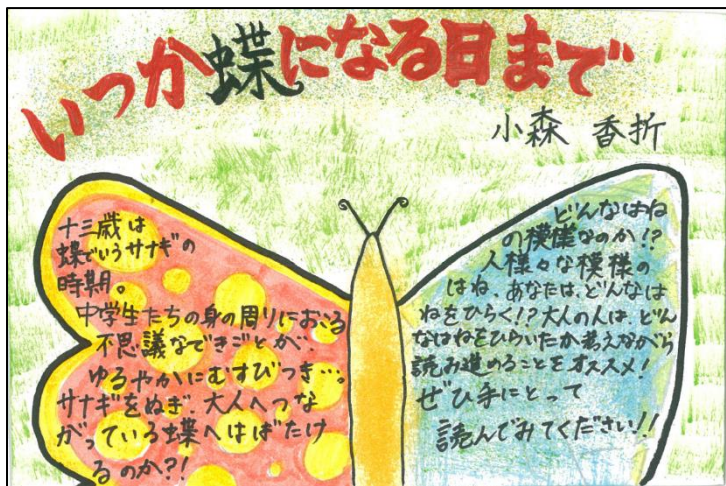 いつか蝶になる日まで
小森 香折
十三歳は
蝶でいうサナギの
時期。
中学生たちの身の周りにおこる
不思議なできごとが、
ゆるやかにむすびつき…。
サナギをぬぎ、大人へつな
がっている蝶へはばたけ
るのか?!
どんなはね
の模様なのか!?
人様々な模様の
はね、あなたは、どんなは
ねをひらく!?大人の人は、どん
なはねをひらいたか考えながら
読み進めることをオススメ!
ぜひ手にとって
読んでみてください!!